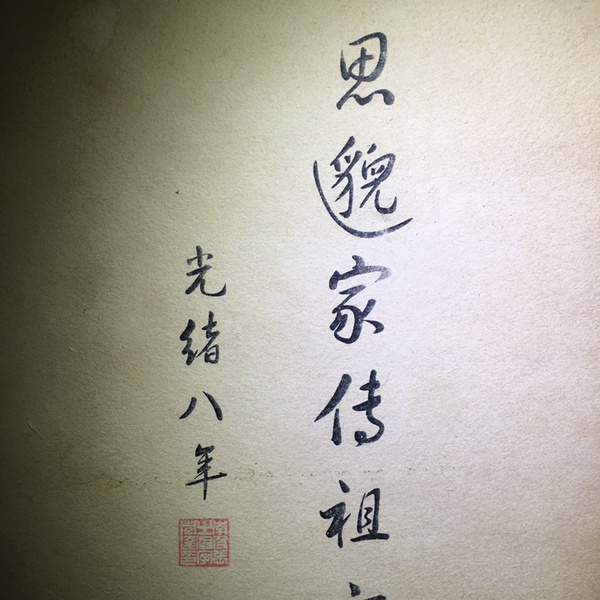 思邈家传祖
光绪八年